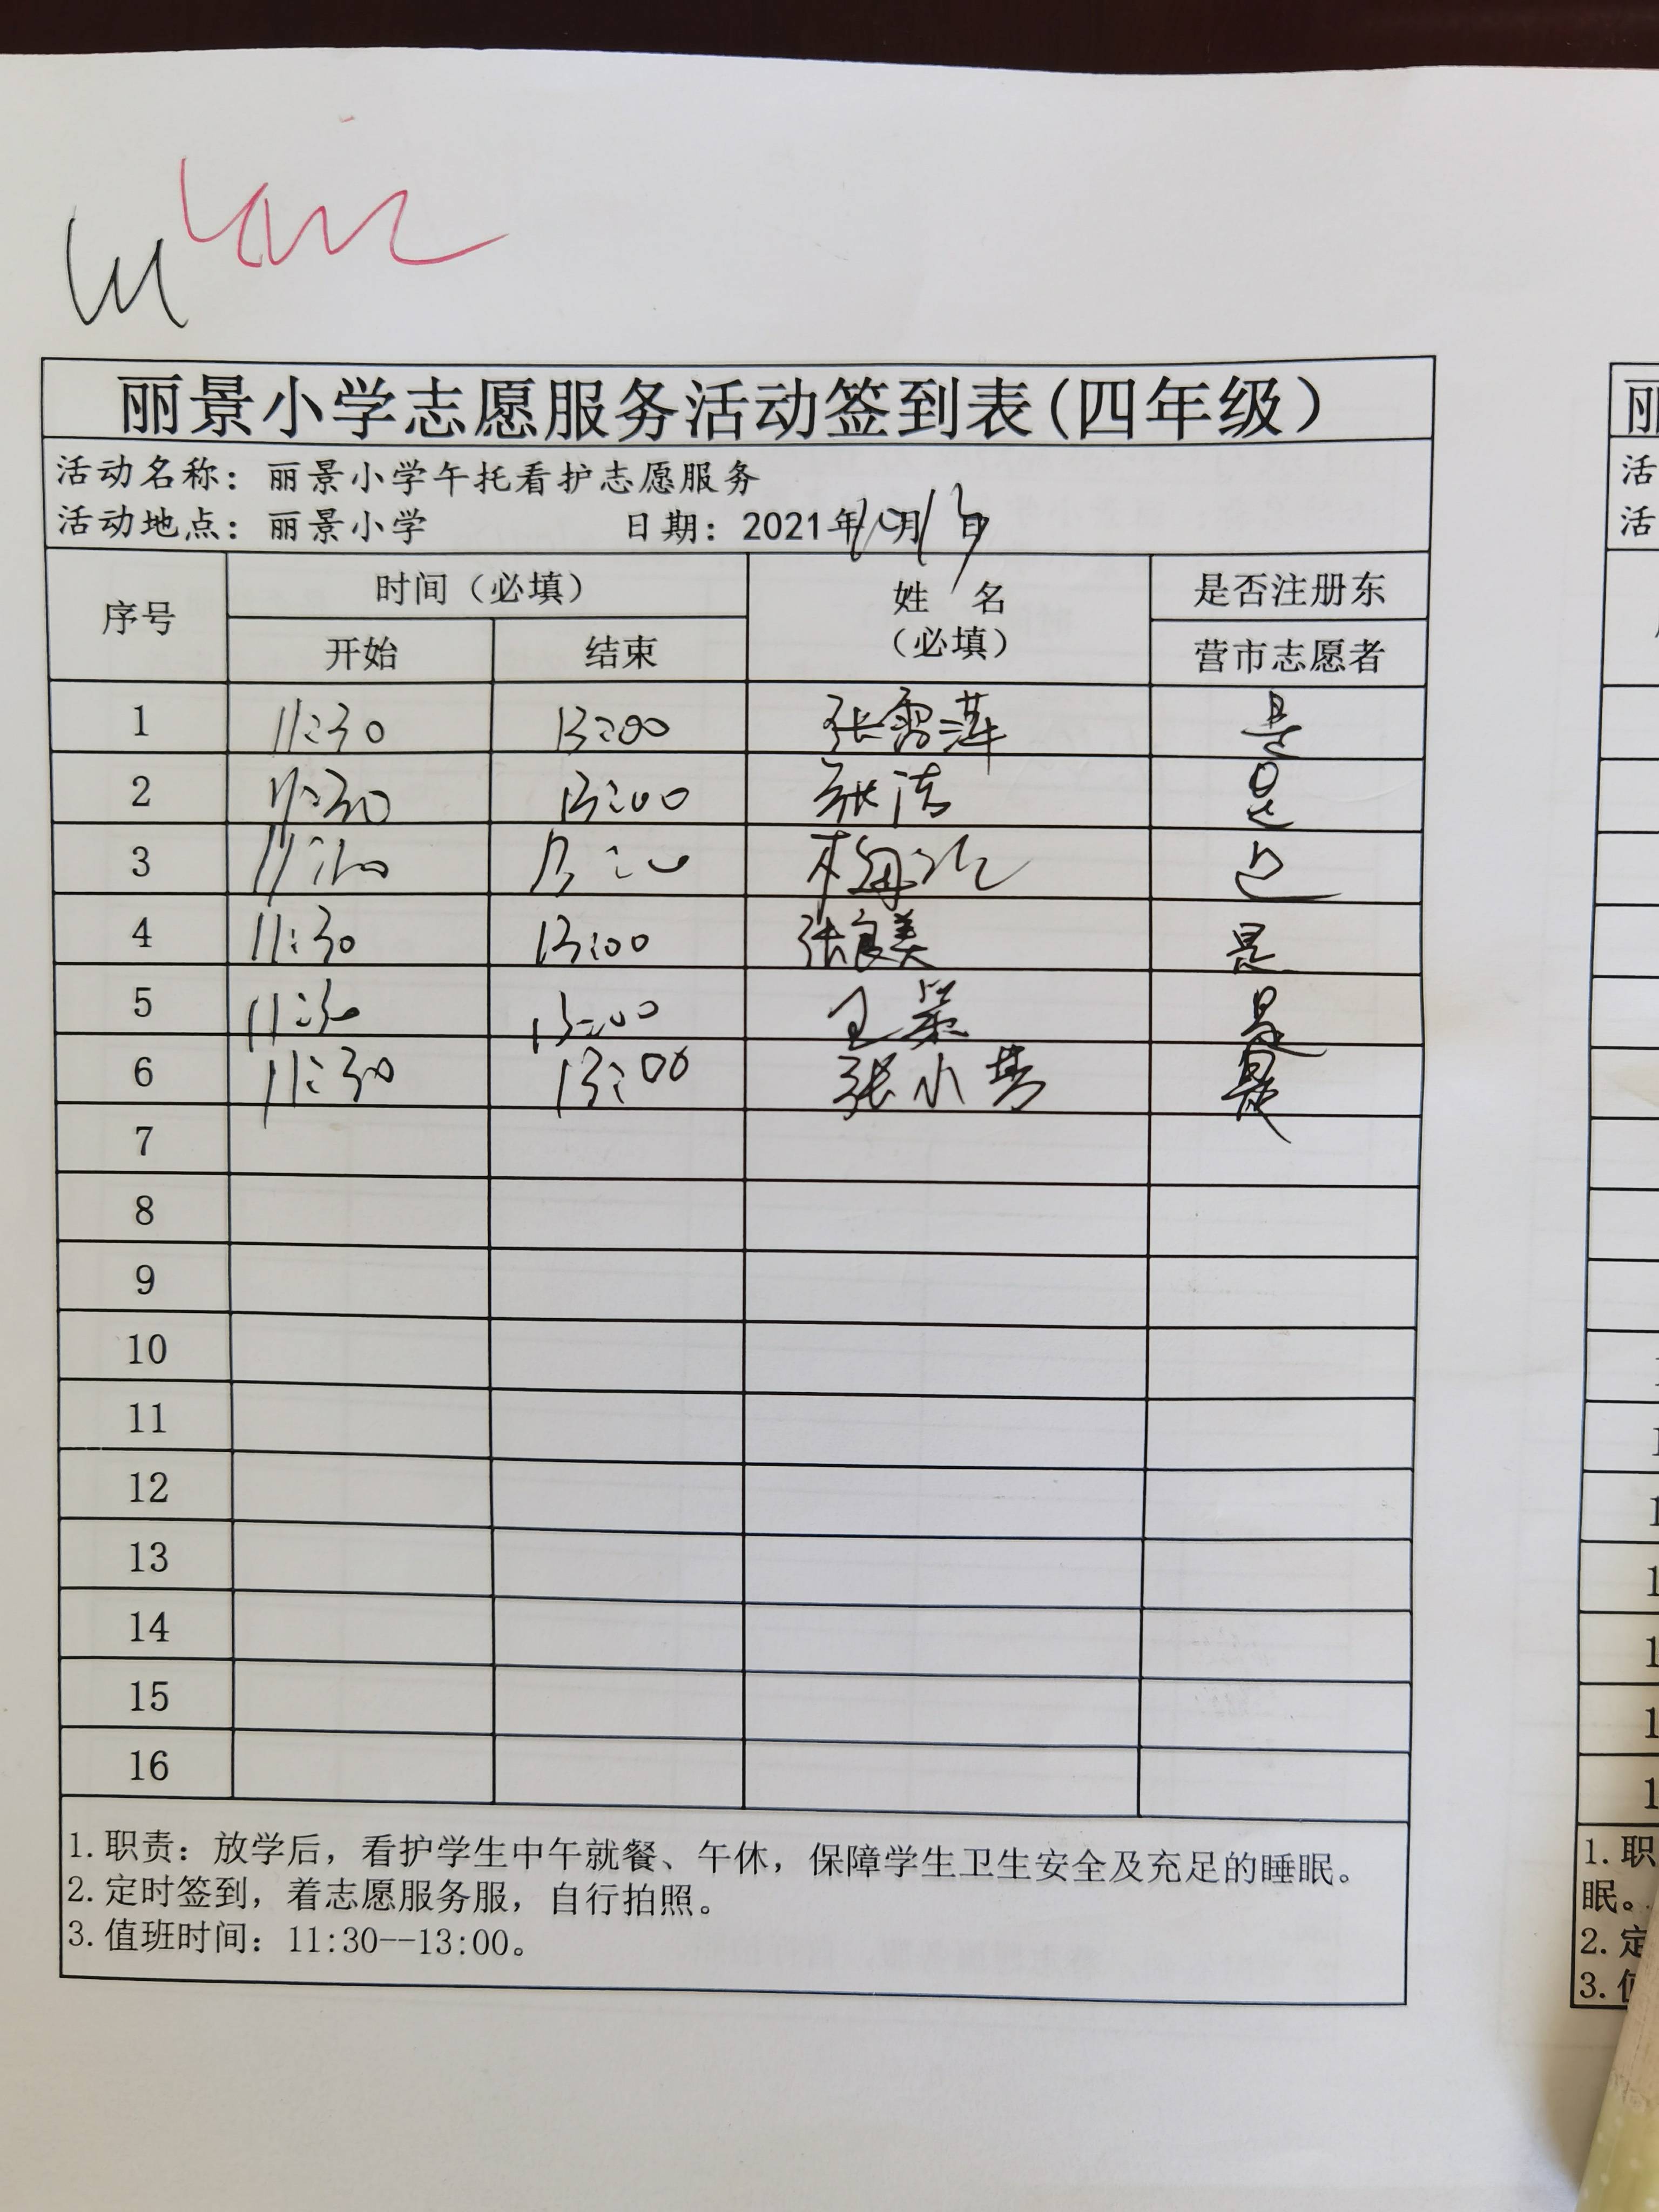 丽景小学志愿服务活动签到表(四年级)
活动名称：丽景小学午托看护志愿服务
活动地点：丽景小学 日期：2021年10月13日
序号 时间（必填） 姓名（必填） 是否注册东营市志愿者
开始 结束
1 11:30 13:00 张雪萍 是
2 11:30 13:00 张洁 是
3 11:30 13:00 是
4 11:30 13:00 张良美 是
5 11:30 13:00 王 是
6 11:30 13:00 张小 是
7
8
9
10
11
12
13
14
15
16
1.职责：放学后，看护学生中午就餐、午休，保障学生卫生安全及充足的睡眠。
2.定时签到，着志愿服务服，自行拍照。
3.值班时间：11:30--13:00。
丽
活
活
1.职
眠。
2.定
3.值